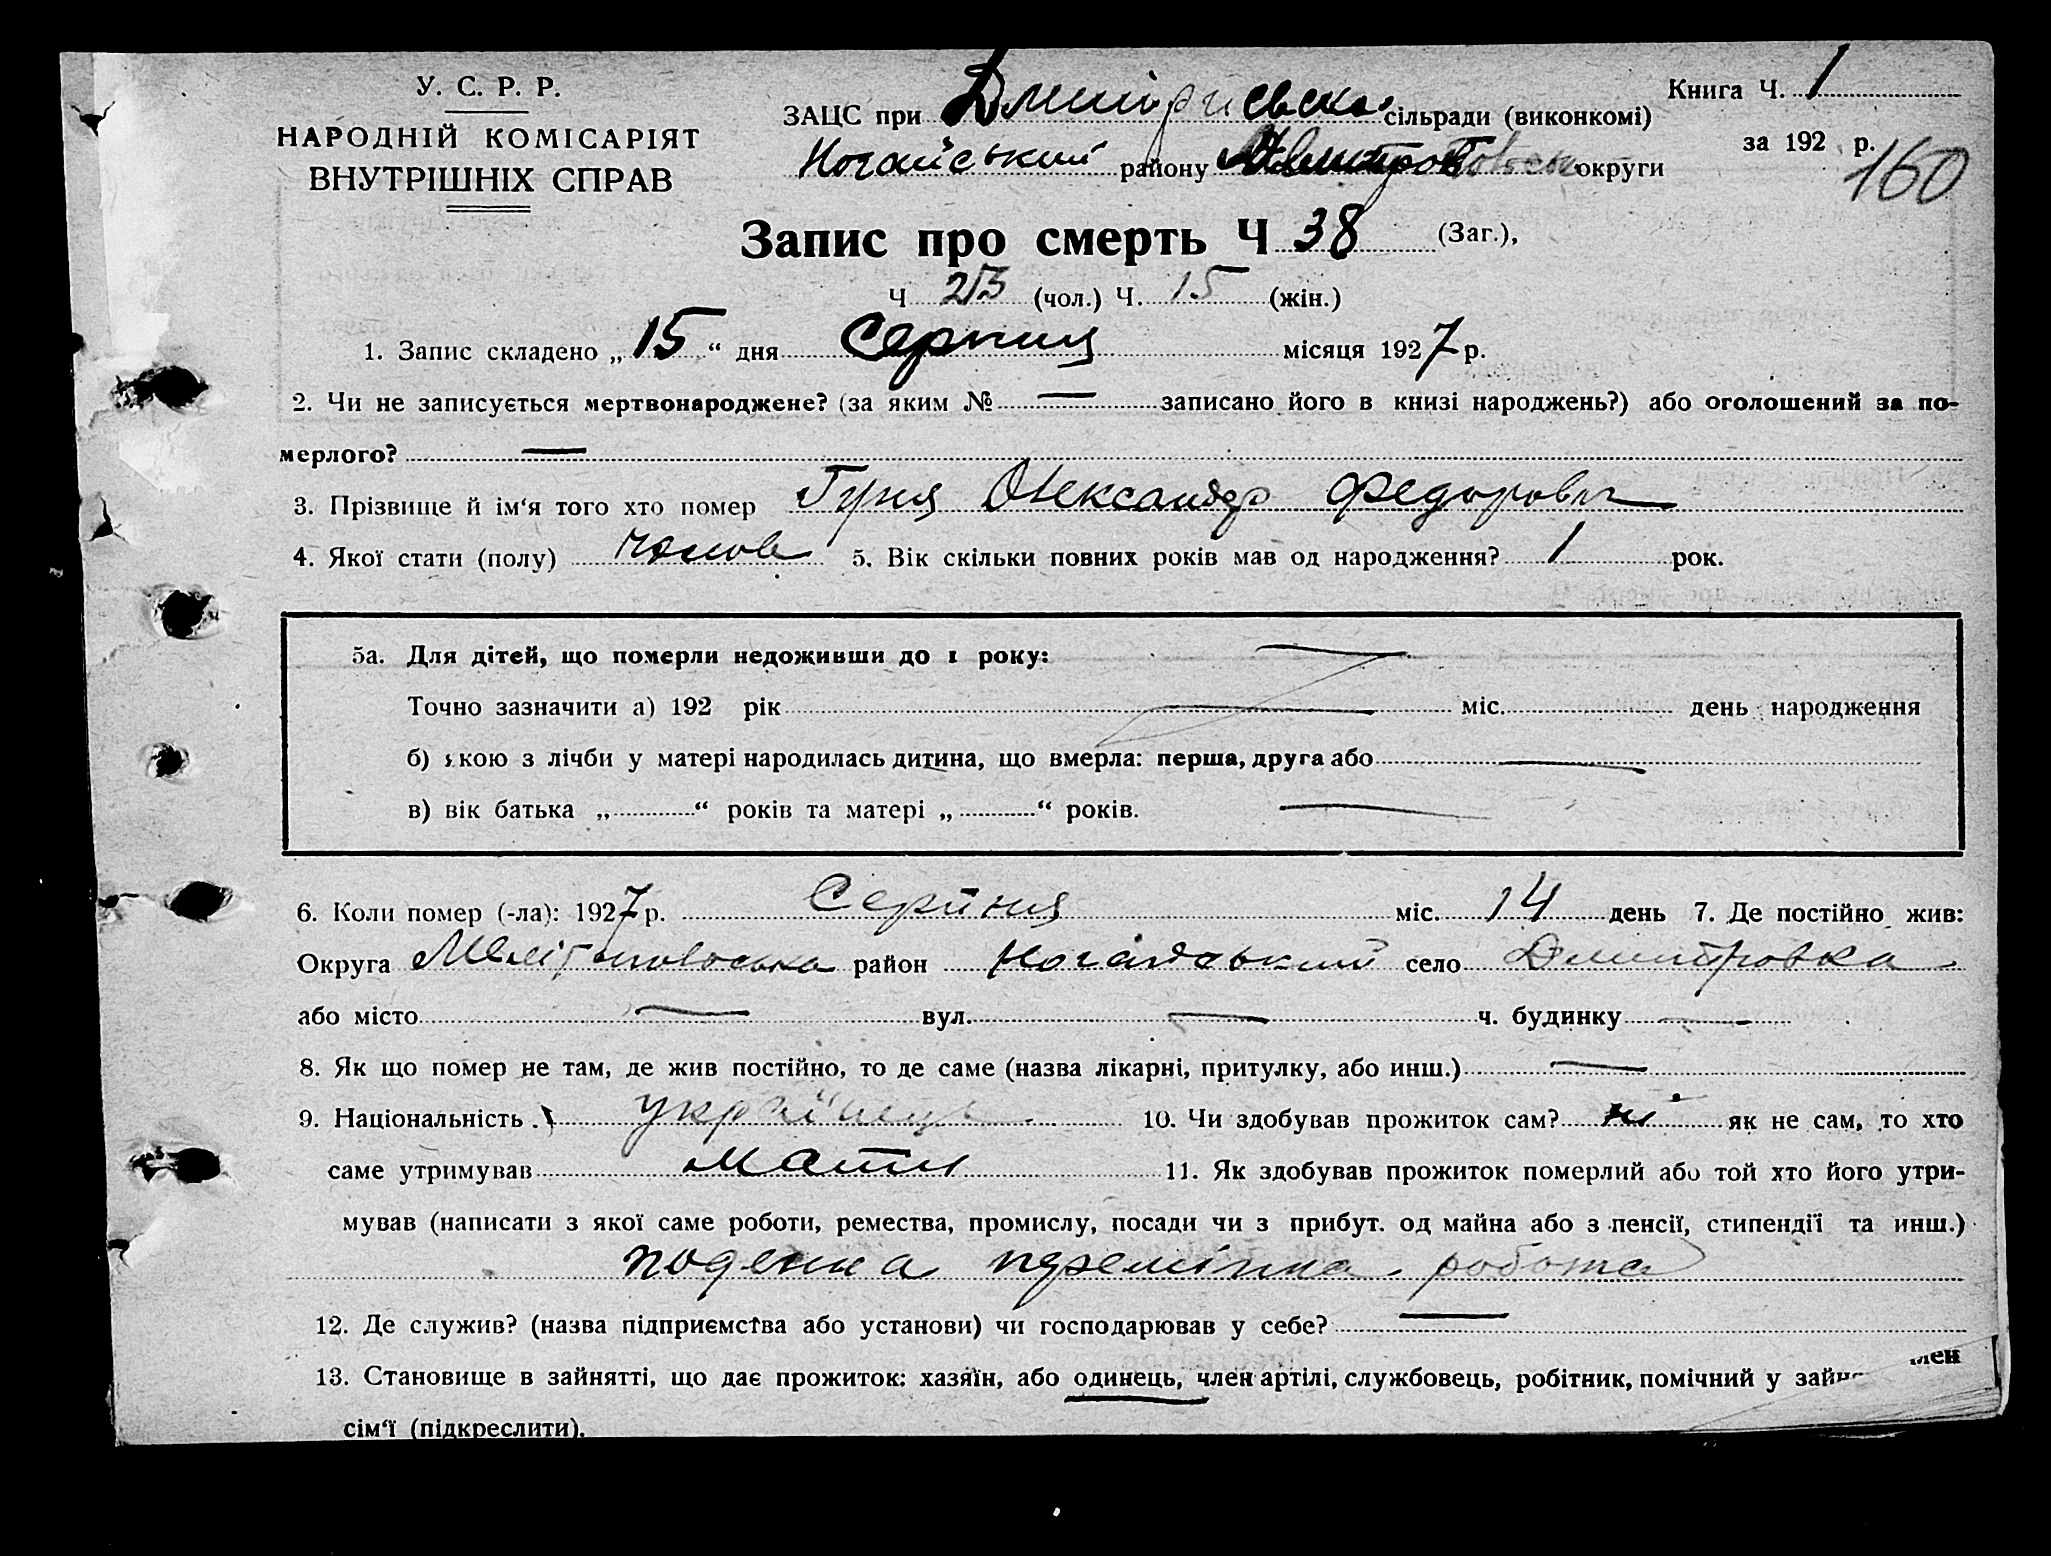 У. С. Р. Р.
НАРОДНІЙ КОМІСАРІЯТ
ВНУТРІШНІХ СПРАВ
Книга Ч. 1
за 192 р.
160
ЗАЦС при Дмитриевска сільради (виконкомі)
Ногайський району округи
Запис про смерть Ч 38 (Заг.),
Ч 23 (чол.) Ч. 15 (жін.)
1. Запис складено „ 15 “ дня Серпня місяця 1927 р.
2. Чи не записується мертвонароджене? (за яким № — записано його в книзі народжень?) або оголошений за по-
мерлого? —
3. Прізвище й ім‘я того хто помер Гуня Олександр Федорович
4. Якої стати (полу) Чолов 5. Вік скільки повних років мав од народження? 1 рок.
5а. Для дітей, що померли недоживши до 1 року: —
Точно зазначити а) 192 рік — міс. день народження
б) якою з лічби у матері народилась дитина, що вмерла: перша, друга або —
в) вік батька „ “ років та матері „ “ років. —
6. Коли помер (-ла): 1927 р. Серпня міс. 14 день 7. Де постійно жив:
Округа Мелітопольська район Ногайський село Дмитровка
або місто — вул. — ч. будинку —
8. Як що помер не там, де жив постійно, то де саме (назва лікарні, притулку, або инш.) —
9. Національність українець 10. Чи здобував прожиток сам? ні як не сам, то хто
саме утримував мати 11. Як здобував прожиток померлий або той хто його утри-
мував (написати з якої саме роботи, ремества, промислу, посади чи з прибут. од майна або з пенсії, стипендії та инш.)
поденна переміпна робота
12. Де служив? (назва підприємства або установи) чи господарював у себе? —
13. Становище в зайнятті, що дає прожиток: хазяїн, або одинець, член артілі, службовець, робітник, помічний у зайн член
сім‘ї (підкреслити).